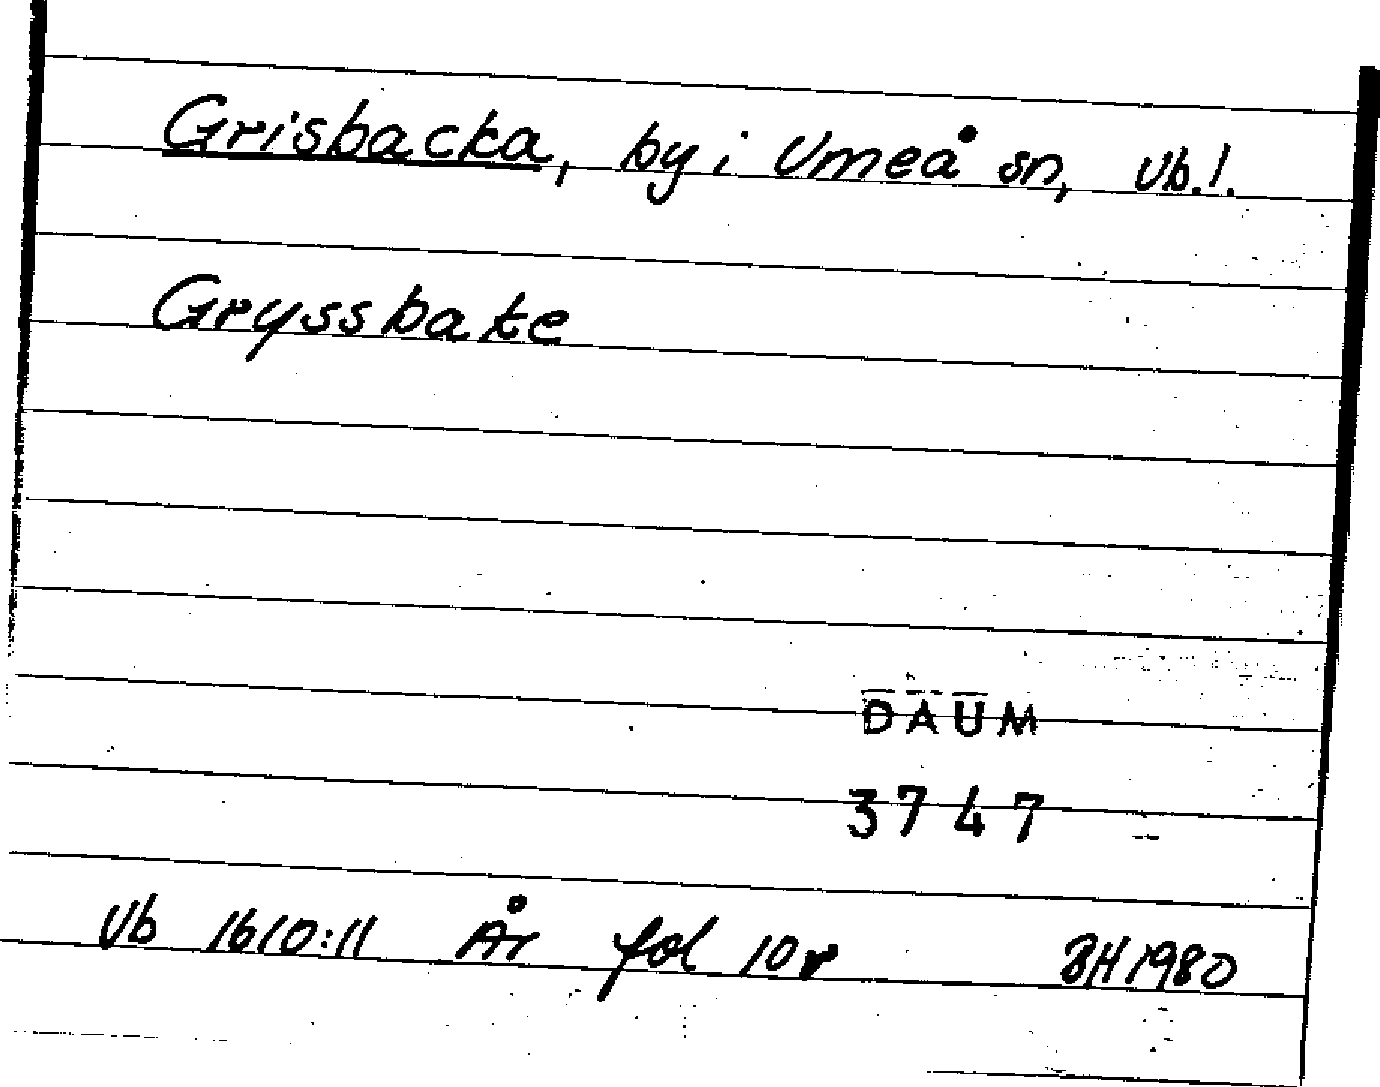 Grisbacka, by i Umeå sn, Vb.l.
Gryssbake
DAUM
3747
Vb 1610:11 År fol 10v BH 1980